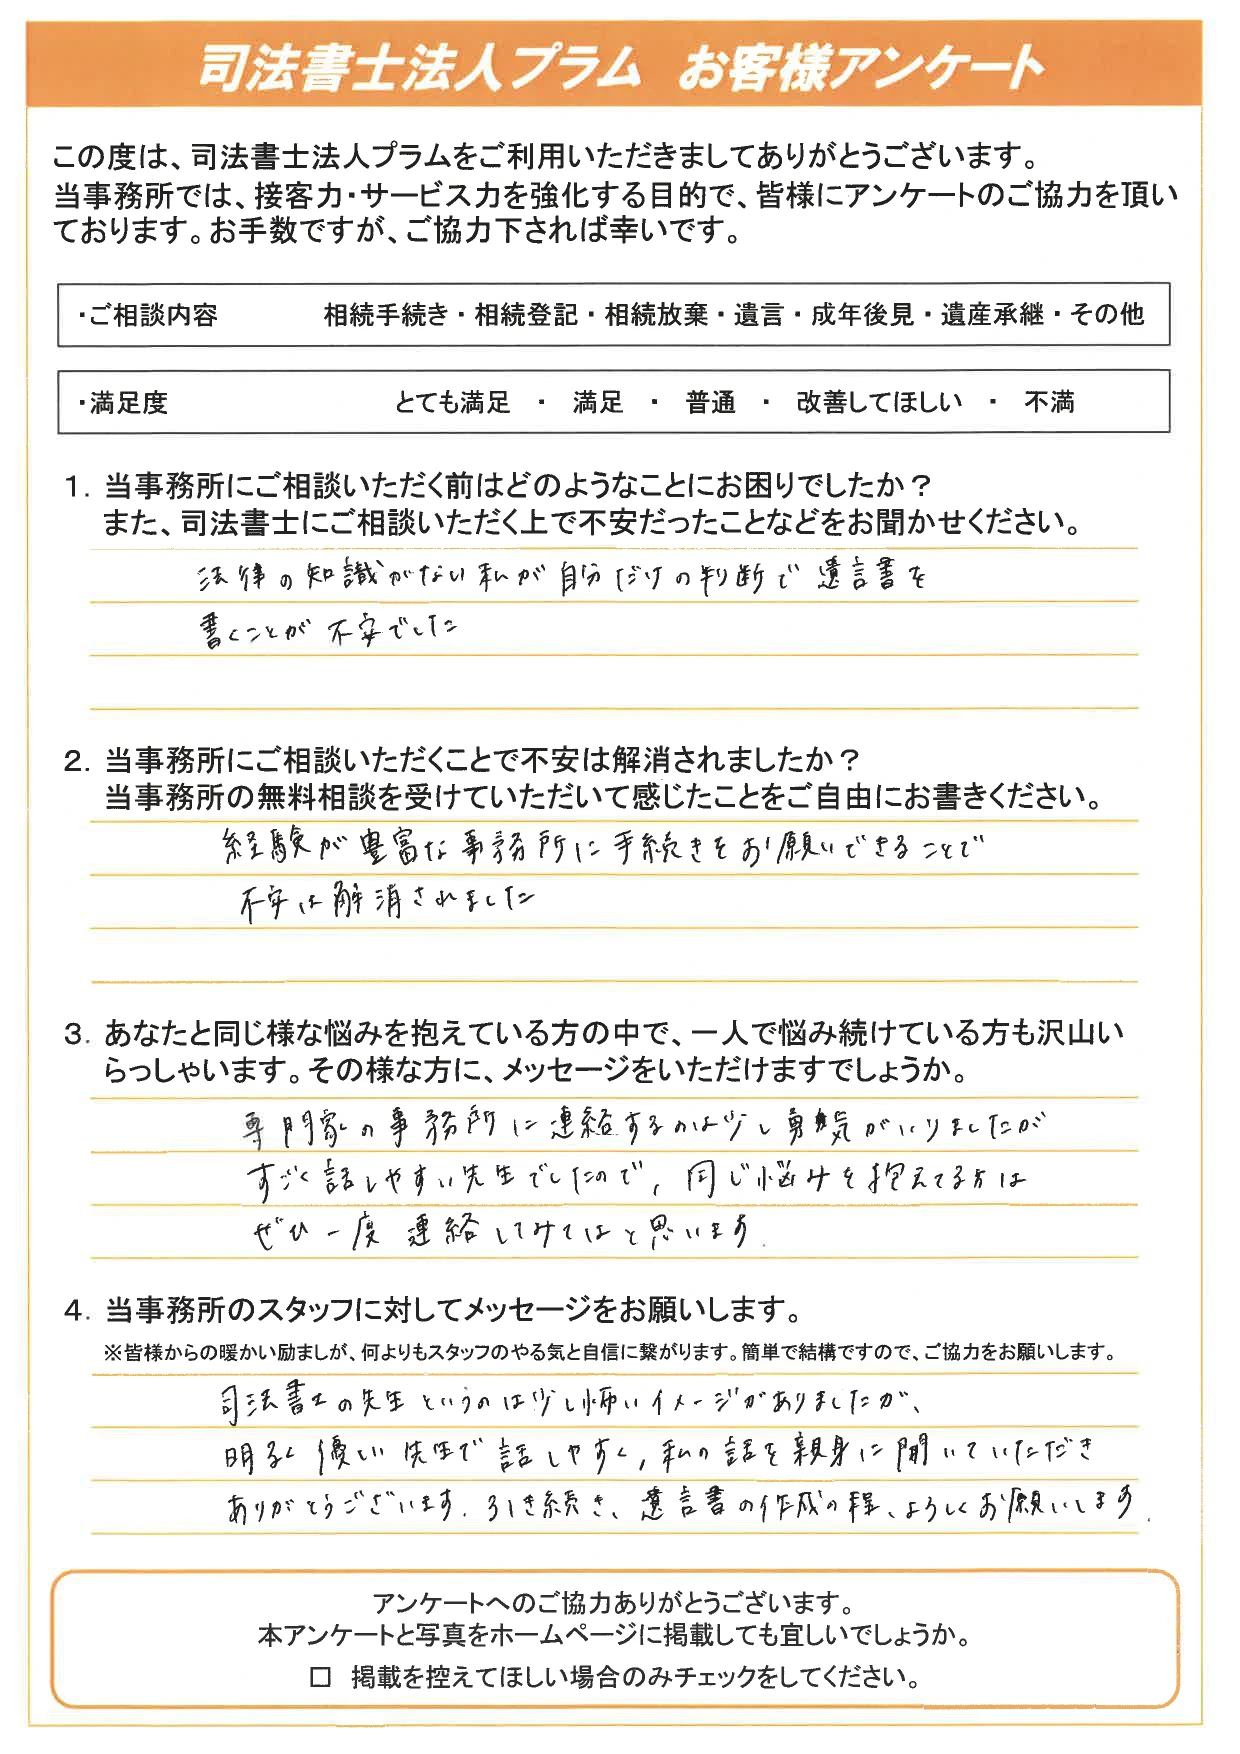 司法書士法人プラム　お客様アンケート
この度は、司法書士法人プラムをご利用いただきましてありがとうございます。
当事務所では、接客力・サービス力を強化する目的で、皆様にアンケートのご協力を頂い
ております。お手数ですが、ご協力下されば幸いです。
・ご相談内容　相続手続き・相続登記・相続放棄・遺言・成年後見・遺産承継・その他
・満足度　とても満足　・　満足　・　普通　・　改善してほしい　・　不満
1. 当事務所にご相談いただく前はどのようなことにお困りでしたか？
また、司法書士にご相談いただく上で不安だったことなどをお聞かせください。
法律の知識がない私が自分だけの判断で遺言書を
書くことが不安でした
2. 当事務所にご相談いただくことで不安は解消されましたか？
当事務所の無料相談を受けていただいて感じたことをご自由にお書きください。
経験が豊富な事務所に手続きをお願いできることで
不安は解消されました
3. あなたと同じ様な悩みを抱えている方の中で、一人で悩み続けている方も沢山い
らっしゃいます。その様な方に、メッセージをいただけますでしょうか。
専門家の事務所に連絡するのは少し勇気がいりましたが
すごく話しやすい先生でしたので、同じ悩みを抱えてる方は
ぜひ一度連絡してみてはと思います。
4. 当事務所のスタッフに対してメッセージをお願いします。
※皆様からの暖かい励ましが、何よりもスタッフのやる気と自信に繋がります。簡単で結構ですので、ご協力をお願いします。
司法書士の先生というのは少し怖いイメージがありましたが、
明るく優しい先生で話しやすく、私の話を親身に聞いていただき
ありがとうございます。引き続き、遺言書の作成の程、よろしくお願いします。
アンケートへのご協力ありがとうございます。
本アンケートと写真をホームページに掲載しても宜しいでしょうか。
□ 掲載を控えてほしい場合のみチェックをしてください。